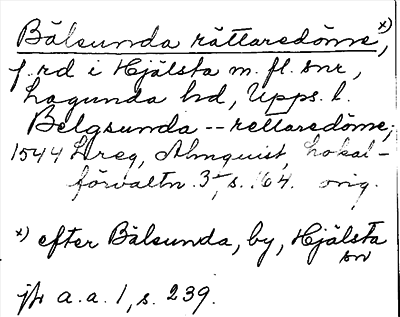 Bälsunda rättaredöme x),
f.rd i Hjälsta m. fl. snr,
Lagunda hd, Upps. l.
Belgsunda -- rettaredöme,
1544 Lreg, Almquist, Lokal-
förvaltn. 3, s. 164. orig.
x) efter Bälsunda, by, Hjälsta
sn
jfr a.a. 1, s. 239.